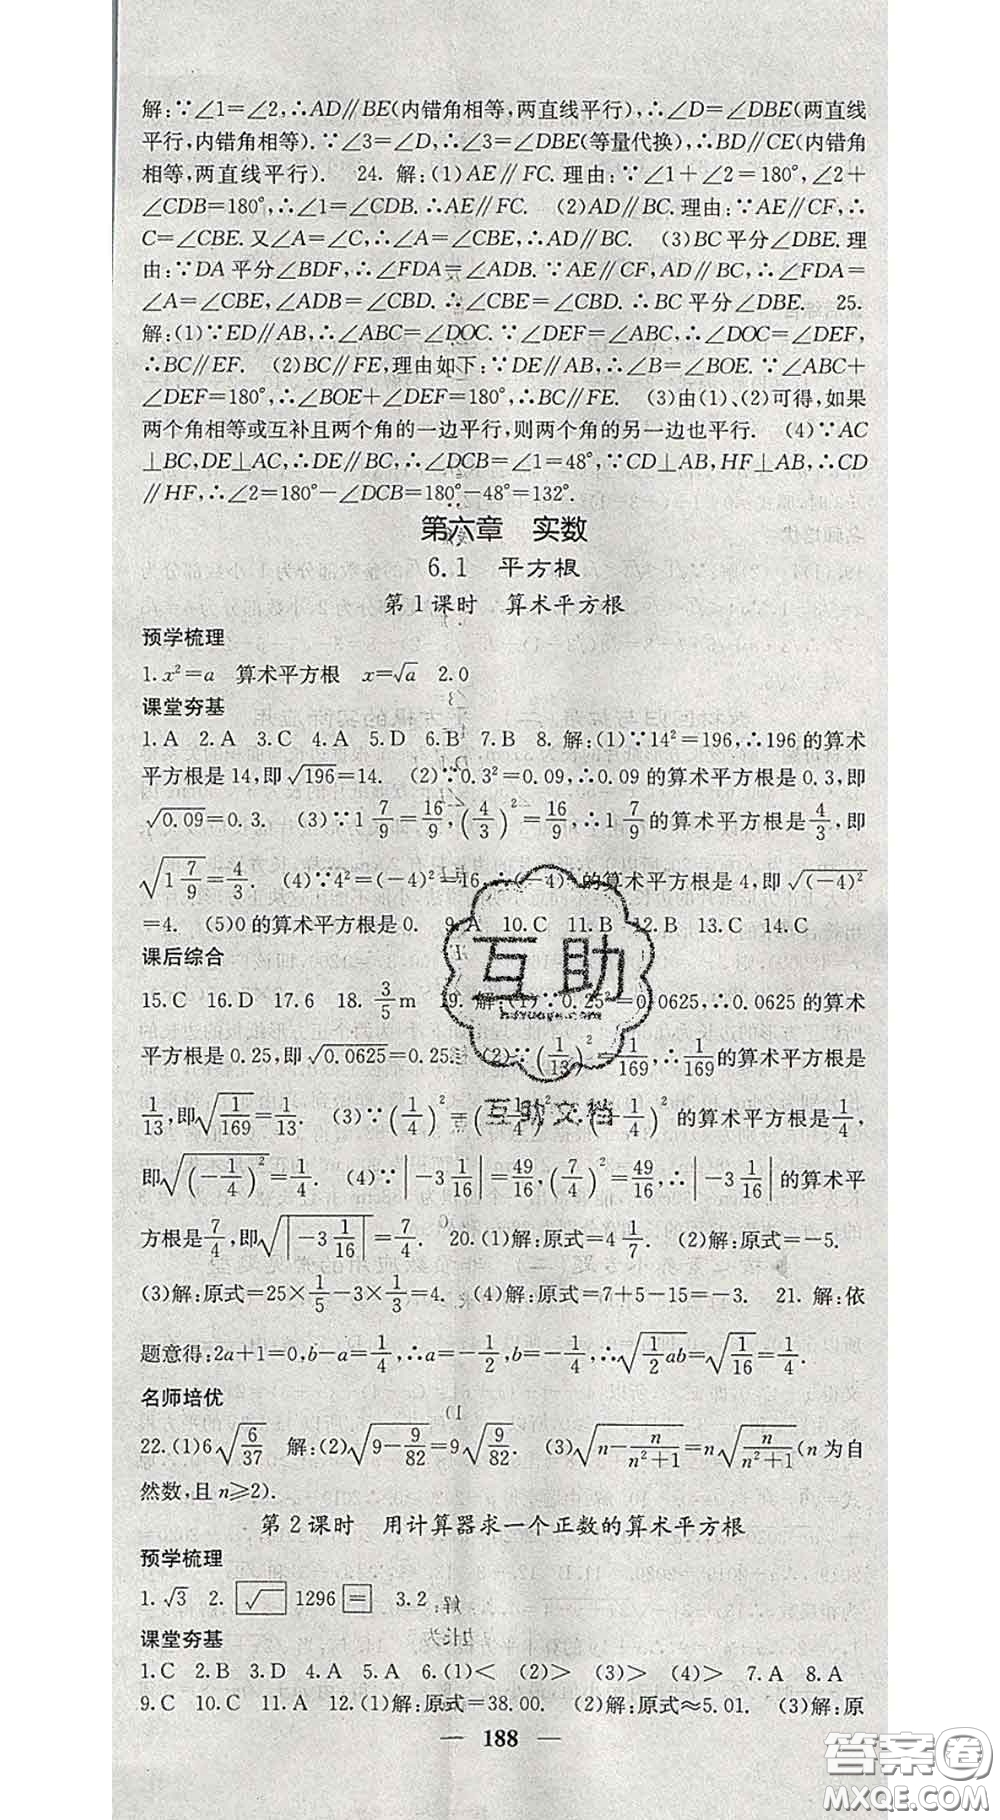 解:∵∠1=∠2,∴AD∥BE(内错角相等,两直线平行),∴∠D=∠DBE(两直线
平行,内错角相等).∵∠3=∠D,∴∠3=∠DBE(等量代换),∴BD∥CE(内错角
相等,两直线平行). 24. 解:(1)AE∥FC. 理由:∵∠1+∠2=180°,∠2+
∠CDB=180°,∴∠1=∠CDB.∴AE∥FC. (2)AD∥BC. 理由:∵AE∥CF,∴
C=∠CBE. 又∠A=∠C,∴∠A=∠CBE,∴AD∥BC. (3)BC平分∠DBE. 理
由:∵DA平分∠BDF,∴∠FDA=∠ADB.∵AE∥CF,AD∥BC,∴∠FDA=
∠A=∠CBE,∠ADB=∠CBD.∴∠CBE=∠CBD.∴BC平分∠DBE. 25.
解:(1)∵ED∥AB,∴∠ABC=∠DOC.∵∠DEF=∠ABC,∴∠DOC=∠DEF,
∴BC∥EF. (2)BC∥FE,理由如下:∵DE∥AB,∴∠B=∠BOE.∵∠ABC+
∠DEF=180°,∴∠BOE+∠DEF=180°,∴BC∥FE. (3)由(1)、(2)可得,如果
两个角相等或互补且两个角的一边平行,则两个角的另一边也平行. (4)∵AC
⊥BC,DE⊥AC,∴DE∥BC,∴∠DCB=∠1=48°,∵CD⊥AB,HF⊥AB,∴CD
∥HF,∴∠2=180°-∠DCB=180°-48°=132°.
第六章 实数
6.1 平方根
第1课时 算术平方根
预学梳理
1.x²=a 算术平方根 x=√a 2.0
课堂夯基
1.A 2.A 3.C 4.A 5.D 6.B 7.B 8. 解:(1)∵14²=196,∴196的算术
平方根是14,即√196=14. (2)∵0.3²=0.09,∴0.09的算术平方根是0.3,即
√0.09=0.3. (3)∵1 7/9=16/9,(4/3)²=16/9,∴1 7/9的算术平方根是4/3,即
√(1 7/9)=4/3. (4)∵4²=(-4)²=16,∴(-4)²的算术平方根是4,即√(-4)²
=4. (5)0的算术平方根是0. 9.A 10.C 11.B 12.B 13.C 14.C
课后综合
15.C 16.D 17.6 18. 3/5 m 19. 解:(1)∵0.25²=0.0625,∴0.0625的算术
平方根是0.25,即√0.0625=0.25. (2)∵(1/13)²=1/169,∴1/169的算术平方根是
1/13,即√(1/169)=1/13. (3)∵(1/4)²=(-1/4)²,∴(-1/4)²的算术平方根是1/4,
即√((-1/4)²)=1/4. (4)∵|-3 1/16|=49/16,(7/4)²=49/16,∴|-3 1/16|的算术平
方根是7/4,即√|-3 1/16|=7/4. 20.(1)解:原式=4 1/7. (2)解:原式=-5.
(3)解:原式=25×1/5-3×1/3=4. (4)解:原式=7+5-15=-3. 21. 解:依
题意得:2a+1=0,b-a=1/4,∴a=-1/2,b=-1/4,∴√(1/2 ab)=√(1/16)=1/4.
名师培优
22.(1)6√(6/37) 解:(2)√(9-9/82)=9√(9/82). (3)√(n-n/(n²+1))=n√(n/(n²+1))(n为自
然数,且n≥2).
第2课时 用计算器求一个正数的算术平方根
预学梳理
1.√3 2. √ 1296 = 3.2
课堂夯基
1.C 2.B 3.D 4.A 5.A 6.(1)< (2)> (3)> (4)> 7.A 8.A
9.C 10.C 11.A 12.(1)解:原式=38.00. (2)解:原式≈5.01. (3)解:原
188
互助
互助文档
答案圈
MXQE.COM